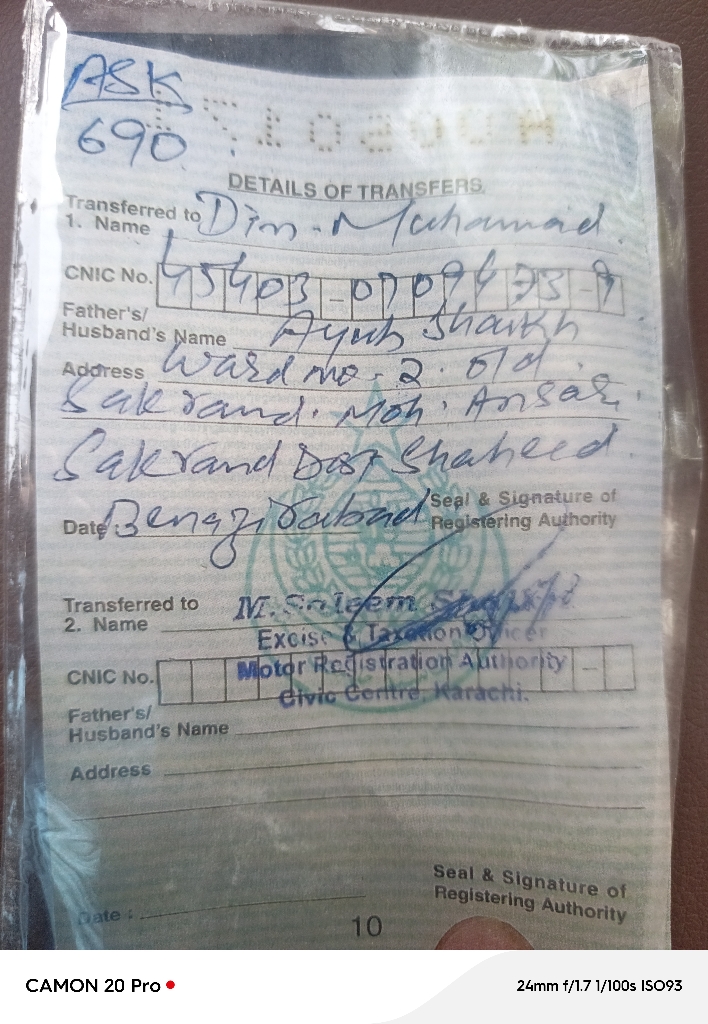 ASK
690
DETAILS OF TRANSFERS
Transferred to
1. Name Din. Muhamad.
CNIC No. 45403-0709473-9
Father's/
Husband's Name Ayub Shaikh
Address Ward no. 2. old.
Sakrand. Moh. Ansari.
Sakrand Dist Shaheed.
Benazirabad Seal & Signature of
Date: Registering Authority
Transferred to
2. Name
M. Saleem
Excise & Taxation Officer
CNIC No. Motor Registration Authority
Civic Centre, Karachi.
Father's/
Husband's Name
Address
Seal & Signature of
Registering Authority
Date :
10
CAMON 20 Pro 24mm f/1.7 1/100s ISO93